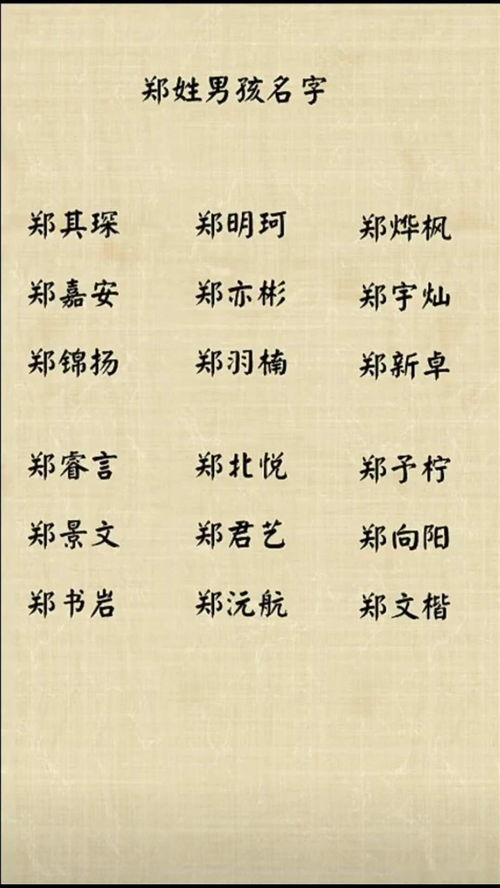 郑姓男孩名字
郑其琛 郑明珂 郑烨枫
郑嘉安 郑亦彬 郑宇灿
郑锦扬 郑羽楠 郑新卓
郑睿言 郑北悦 郑予柠
郑景文 郑君艺 郑向阳
郑书岩 郑沅航 郑文楷